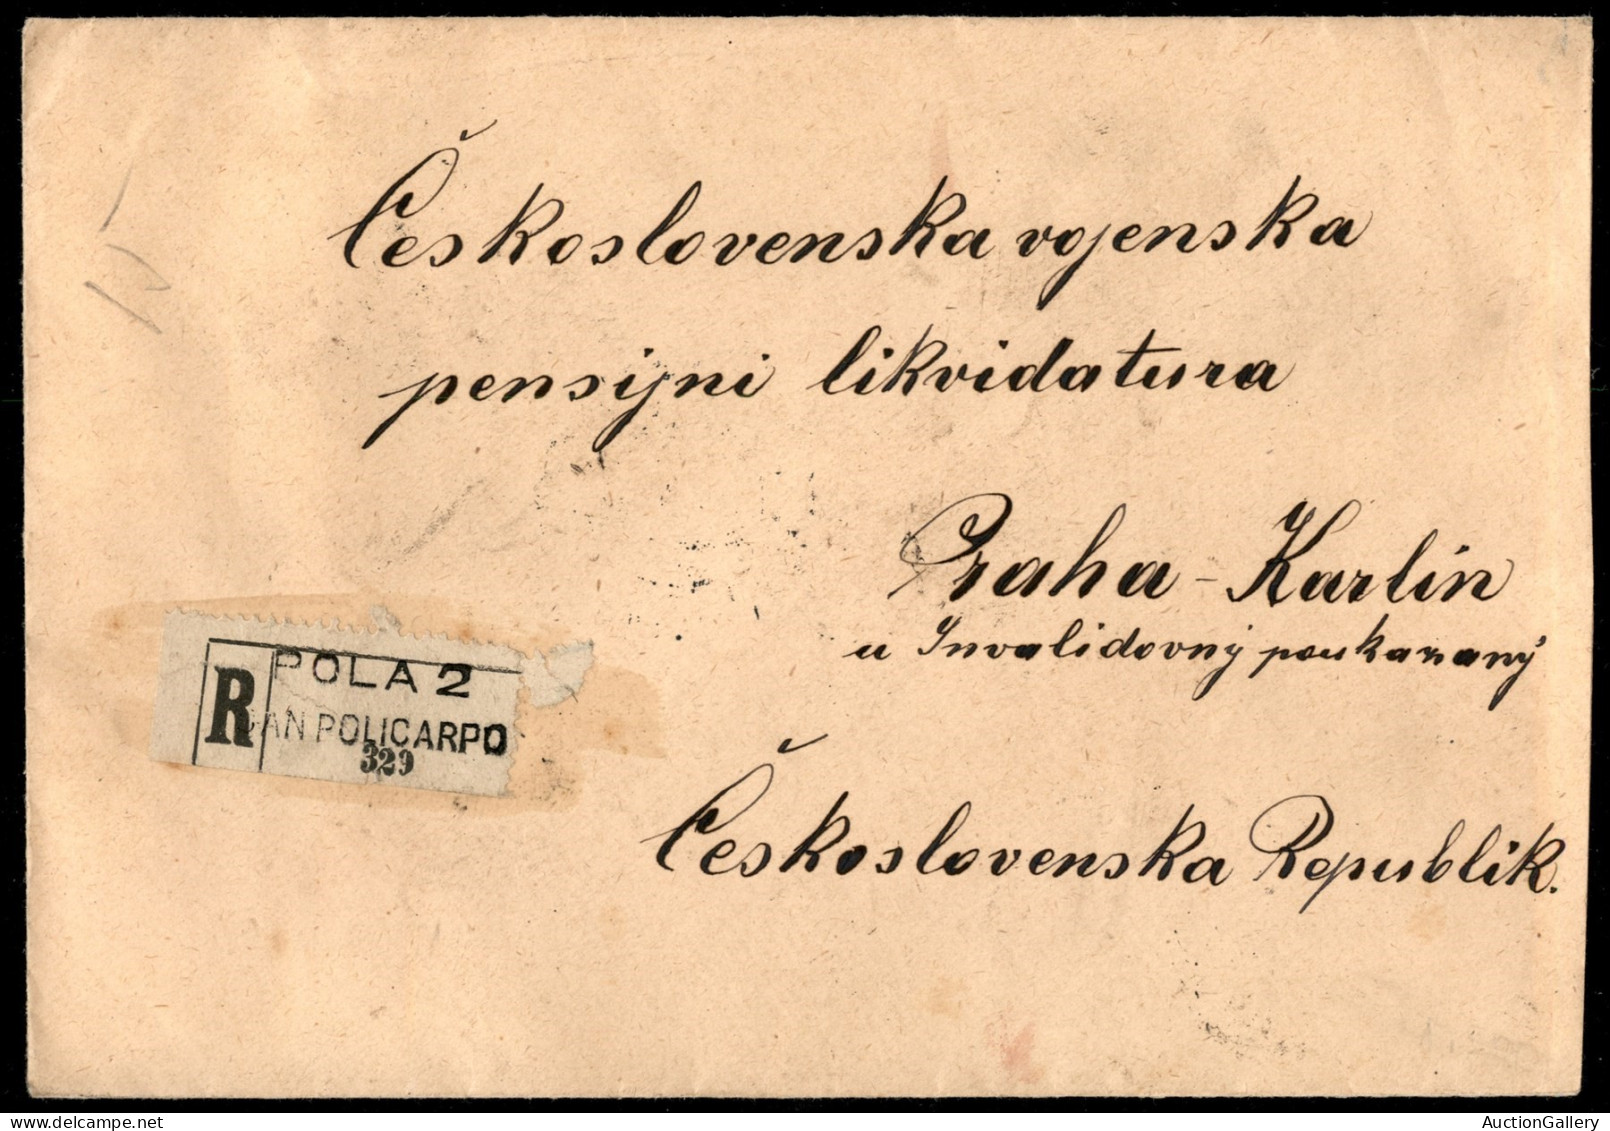 Československa vojenska
pensijni likvidatura
Praha - Karlin
u Invalidovny poukazany
Československa Republik.
POLA 2
R
SAN POLICARPO
329
15
AuctionGallery